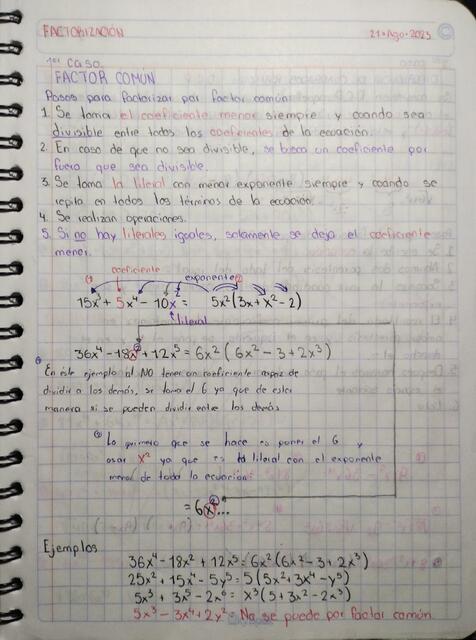 FACTORIZACIÓN 21•Ago•2023
1er Caso.
FACTOR COMÚN
Pasos para factorizar por factor común:
1. Se toma el coeficiente menor siempre y cuando sea
divisible entre todos los coeficientes de la ecuación.
2. En caso de que no sea divisible, se busca un coeficiente por
fuera que sea divisible.
3. Se toma la literal con menor exponente siempre y cuando se
repita en todos los términos de la ecuación.
4. Se realizan operaciones.
5. Si no hay literales iguales, solamente se deja el coeficiente
menor.
coeficiente exponente
15x³ + 5x⁴ - 10x² = 5x²(3x + x² - 2)
literal
36x⁴ - 18x² + 12x⁵ = 6x² (6x² - 3 + 2x³)
En este ejemplo al NO tener un coeficiente capaz de
dividir a los demás, se toma el 6 ya que de esta
manera si se pueden dividir entre los demás
Lo primero que se hace es poner el 6 y
usar x² ya que es la literal con el exponente
menor de toda la ecuación:
= 6x²...
Ejemplos
36x⁴ - 18x² + 12x⁵ = 6x² (6x² - 3 + 2x³)
25x² + 15x⁴ - 5y⁵ = 5 (5x² + 3x⁴ - y⁵)
5x³ + 3x⁵ - 2x⁶ = x³ (5 + 3x² - 2x³)
5x³ - 3x⁴ + 2y² = No se puede por factor común